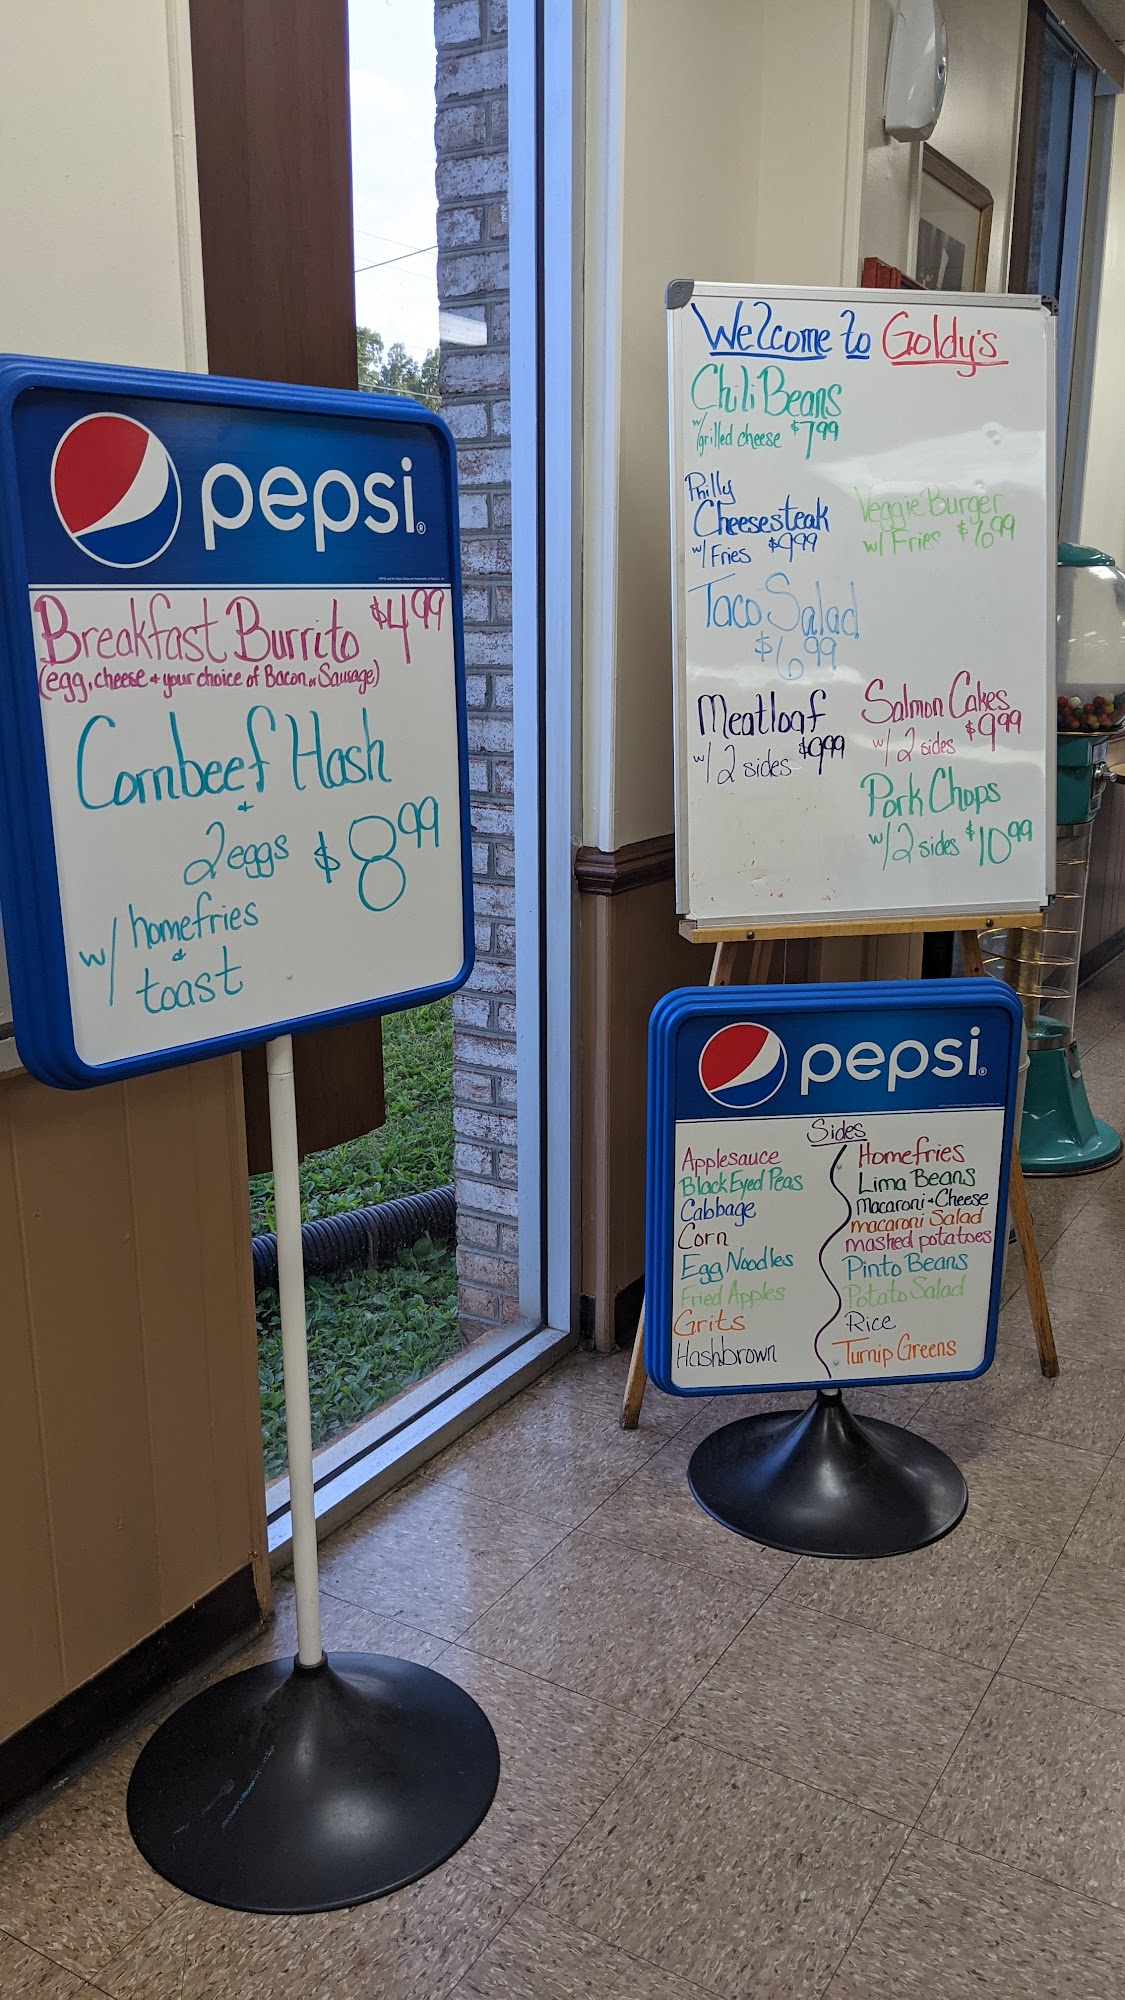 pepsi®
Breakfast Burrito $4.99
(egg, cheese + your choice of Bacon or Sausage)
Cornbeef Hash
+
2 eggs $8.99
w/ homefries
&
toast
Welcome to Goldy's
Chili Beans
w/ grilled cheese $7.99
Philly
Cheesesteak
w/ Fries $9.99
Veggie Burger
w/ Fries $6.99
Taco Salad
$6.99
Meatloaf
w/ 2 sides $9.99
Salmon Cakes
w/ 2 sides $9.99
Pork Chops
w/ 2 sides $10.99
pepsi®
Sides
Applesauce
Black Eyed Peas
Cabbage
Corn
Egg Noodles
Fried Apples
Grits
Hashbrown
Homefries
Lima Beans
Macaroni + Cheese
macaroni Salad
mashed potatoes
Pinto Beans
Potato Salad
Rice
Turnip Greens